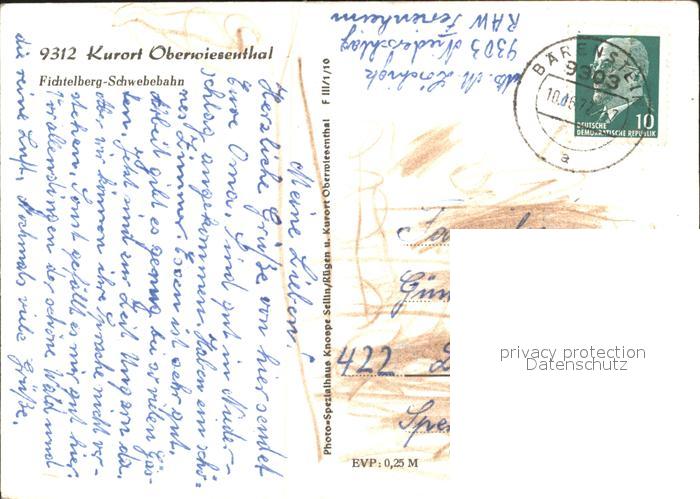 9312 Kurort Oberwiesenthal
Fichtelberg-Schwebebahn
Meine Lieben!
Herzliche Grüße von hier sendet
Eure Oma. Sind gut in Nieder-
schlag angekommen. Haben ein schö-
nes Zimmer. Essen ist sehr gut.
Arbeit gibt es genug bei so vielen Gäs-
ten. Jetzt sind zur Zeit Ungarn da.
Aber wir können ihre Sprache nicht ver-
stehen. Sonst gefällt es mir gut hier.
Vor allen Dingen der schöne Wald und
die reine Luft. Nochmals viele Grüße.
Photo=Spezialhaus Knospe Sellin/Rügen u. Kurort Oberwiesenthal F III/1/10
9303 Niederschlag
RAW Ferienheim
BÄRENSTEIN
9303
a
10
DEUTSCHE
DEMOKRATISCHE REPUBLIK
422
EVP: 0,25 M
privacy protection
Datenschutz